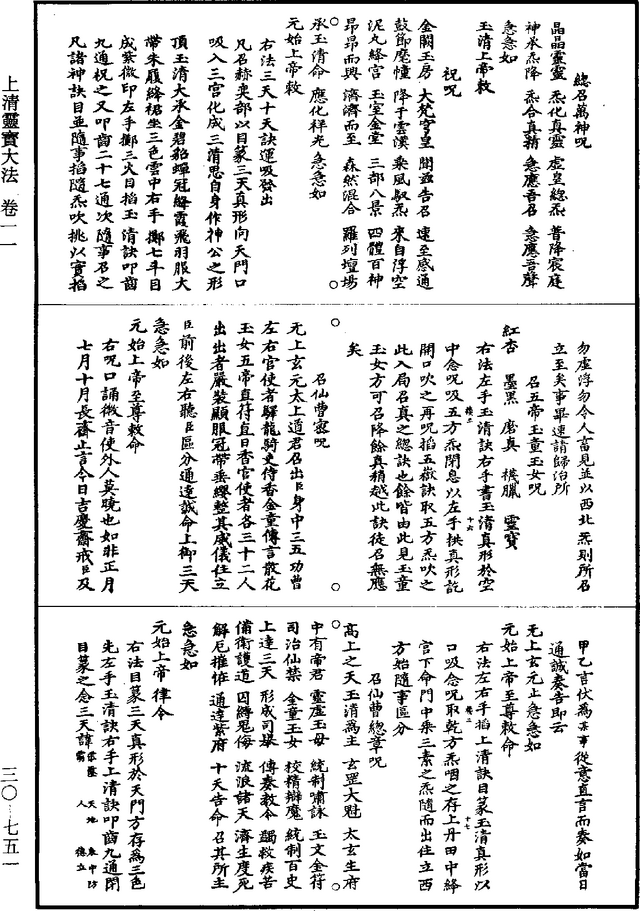 總召萬神呪
晶晶靈靈 炁化真靈 虛皇總炁 普降宸庭
神承炁降 炁合真精 急應吾召 急應吾聲
急急如
玉清上帝敕
祝呪
金闕玉房 大梵穹皇 關盍告召 速至感通
鼓節麾幢 降于雲漢 乘風馭炁 來自浮空
泥丸絳宮 玉室金堂 三部八景 四體百神
昂昂而興 濟濟而至 森然混合 羅列壇場
承玉清命 應化祥光 急急如
元始上帝敕
右法三天十天訣運吸發出
凡召赫奕部以目篆三天真形向天門口
吸入三宮化成三清思自身作神公之形
頂玉清大承金碧貂蟬冠絳霞飛羽服大
帶朱履絳裙坐三色雲中右手擲七斗目
成紫微印左手擲三火目掐玉清訣叩齒
九通祝之又叩齒二十七通次隨事召之
凡諸神訣目並隨事掐隨炁吹挑以實掐
勿虛浮勿令人畜見並以西北炁則所召
立至矣事畢速請歸治所
召五帝玉童玉女呪
紅杏 墨黑 唐真 機臘 靈寶
右法左手玉清訣右手書玉清真形於空
中念呪吸五方炁閉息以左手拱真形訖
開口吹之再呪掐五嶽訣取五方炁吹之
此入局召真之總訣也餘皆由此見玉童
玉女方可召降餘真稍越此訣徒召無應
矣
召仙曹靈呪
元上玄元太上道君召出臣身中三五功曹
左右官使者驛龍騎吏侍香金童傳言散花
玉女五帝直符直日香官使者各三十二人
出出者嚴裝顯服冠帶垂纓整其威儀住立
臣前後左右聽臣區分通達誠命上御三天
急急如
元始上帝至尊敕命
右呪口誦微音使外人莫曉也如非正月
七月十月長齋止言今日吉慶齋戒臣及
甲乙言伏為某事從意直言而奏如當日
通誠奏告即云
無上玄元止急急如
元始上帝至尊敕命
右法左右手掐上清訣目篆玉清真形以
口吸念呪取乾方炁咽之存上丹田中絳
宮下命門中乘三素之炁隨而出住立西
方始隨事區分
召仙曹總章呪
高上之天玉清為主 玄罡大魁 太玄生府
中有帝君 靈虛玉母 統制嘯詠 玉文金符
司治仙禁 金童玉女 校精辯魔 統制百史
上達三天 形成司舉 傳奏教令 蠲救疾苦
備衛護道 因縛鬼侮 流浪諸天 濟生度死
解厄摧祚 通達紫府 十天告命 召其所主
急急如
元始上帝律令
右法目篆三天真形於天門方存為三色
先左手玉清訣右手上清訣叩齒九通閉
目篆之念三天諱
上清靈寶大法 卷一一
三〇—七五一